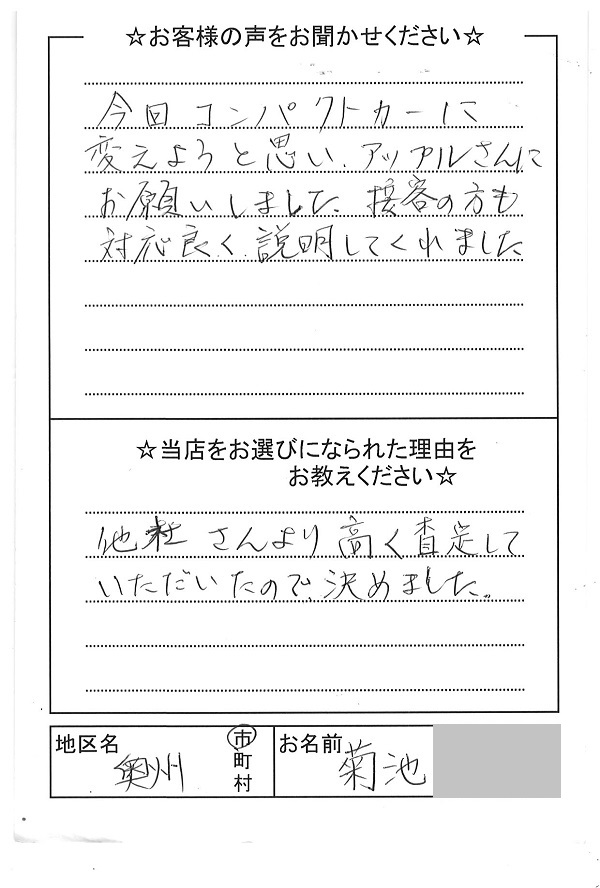 ☆お客様の声をお聞かせください☆
今回コンパクトカーに
変えようと思い、アップルさんに
お願いしました。接客の方も
対応良く、説明してくれました
☆当店をお選びになられた理由を
お教えください☆
他社さんより高く査定して
いただいたので、決めました。
地区名 奥州 市町村 お名前 菊池